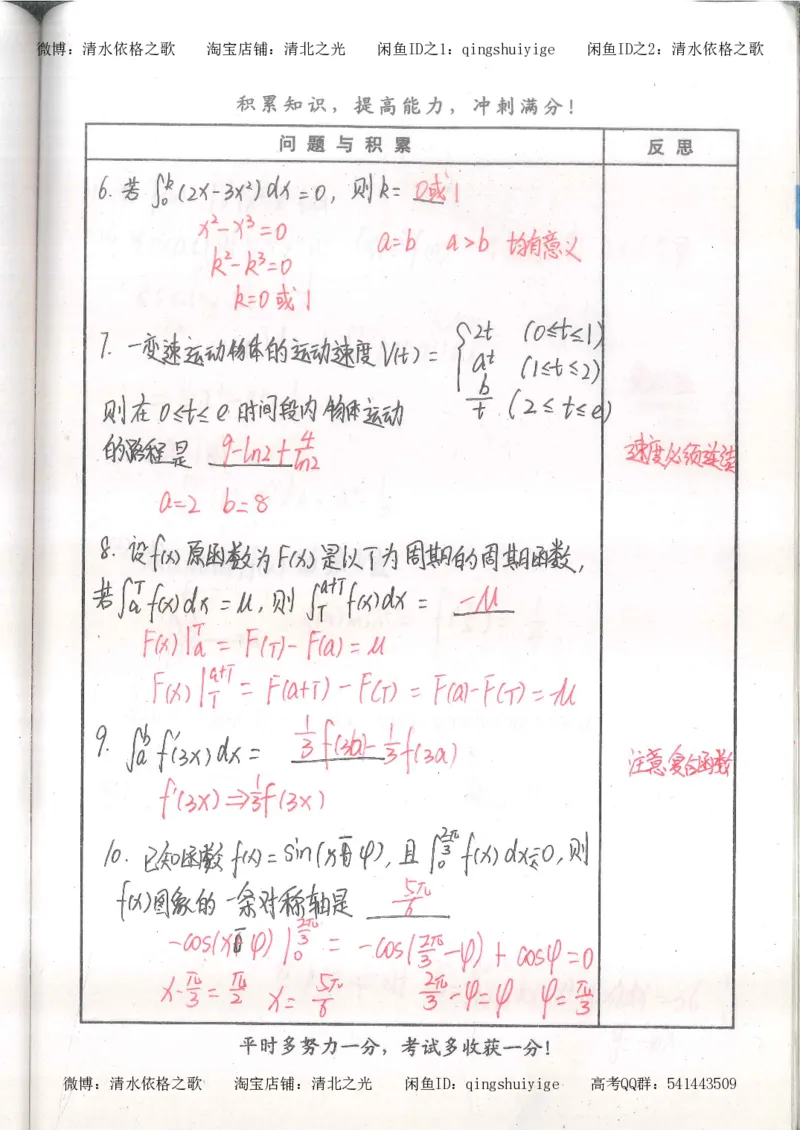 微博：清水依格之歌 淘宝店铺：清北之光 闲鱼ID之1：qingshuiyige 闲鱼ID之2：清水依格之歌
积累知识，提高能力，冲刺满分！
问题与积累 反思
6. 若∫₀ᵏ(2x-3x²)dx=0，则k= 0或1
x²-x³=0
a=b a>b 均有意义
k²-k³=0
k=0或1
7. 一变速运动物体的运动速度V(t)= { 2t (0≤t≤1)
at (1≤t≤2)
b/t (2≤t≤e)
则在0≤t≤e时间段内物体运动
的路程是 9-ln2+4/ln2 速度必须连续
a=2 b=8
8. 设f(x)原函数为F(x)是以T为周期的周期函数，
若∫ₐᵀf(x)dx=μ，则∫_T^{a+T}f(x)dx= -μ
F(x)|ₐᵀ=F(T)-F(a)=μ
F(x)|_T^{a+T}=F(a+T)-F(T)=F(a)-F(T)=-μ
9. ∫ₐᵇf'(3x)dx= 1/3f(3b)-1/3f(3a) 注意复合函数
f'(3x)⇒1/3f(3x)
10. 已知函数f(x)=sin(x-φ)，且∫₀^{2π/3}f(x)dx=0，则
f(x)图象的一条对称轴是 5π/6
-cos(x-φ)|₀^{2π/3}=-cos(2π/3-φ)+cosφ=0
x-π/3=π/2 x=5π/6 2π/3-φ=φ φ=π/3
平时多努力一分，考试多收获一分！
微博：清水依格之歌 淘宝店铺：清北之光 闲鱼ID：qingshuiyige 高考QQ群：541443509